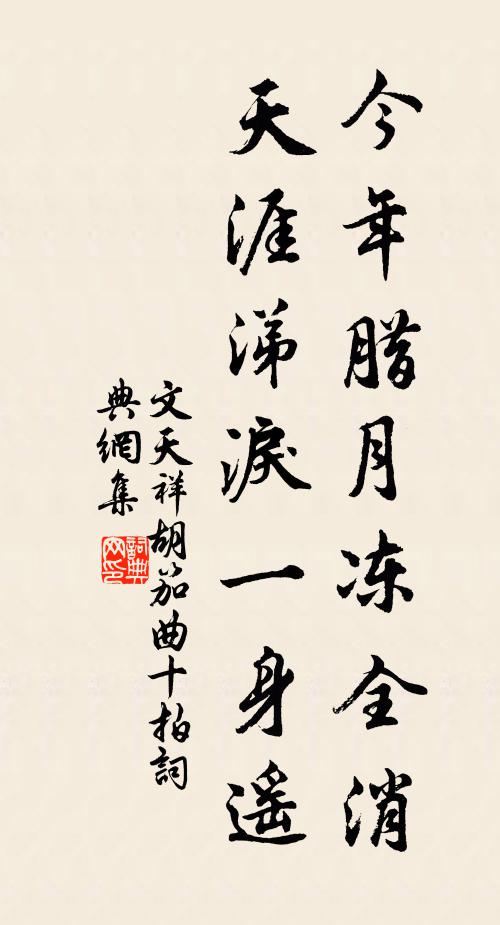 今年腊月冻全消
天涯涕淚一身遥
文天祥胡笳曲十拍詞
典網集
詞典
网印